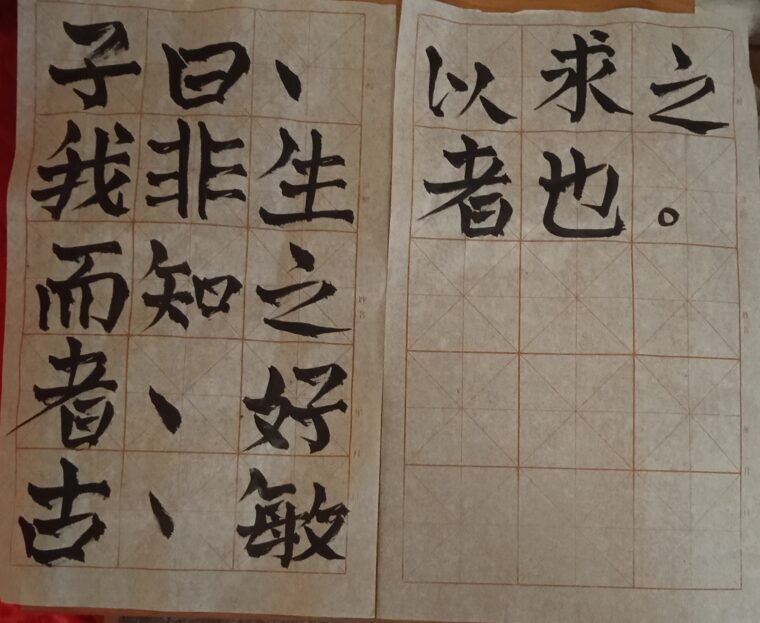 子曰、
我非生
而知之
者、好
古、敏
以求之
者也。